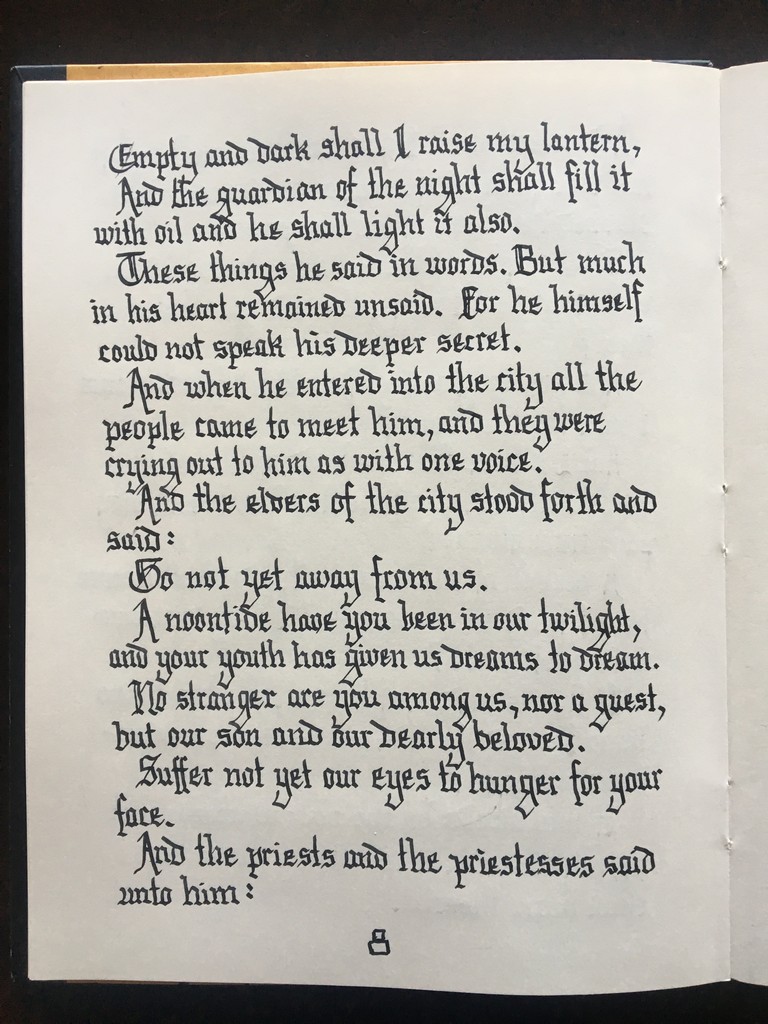 Empty and dark shall I raise my lantern,
And the guardian of the night shall fill it
with oil and he shall light it also.
These things he said in words. But much
in his heart remained unsaid. For he himself
could not speak his deeper secret.
And when he entered into the city all the
people came to meet him, and they were
crying out to him as with one voice.
And the elders of the city stood forth and
said:
Go not yet away from us.
A noontide have you been in our twilight,
and your youth has given us dreams to dream.
No stranger are you among us, nor a guest,
but our son and our dearly beloved.
Suffer not yet our eyes to hunger for your
face.
And the priests and the priestesses said
unto him:
8